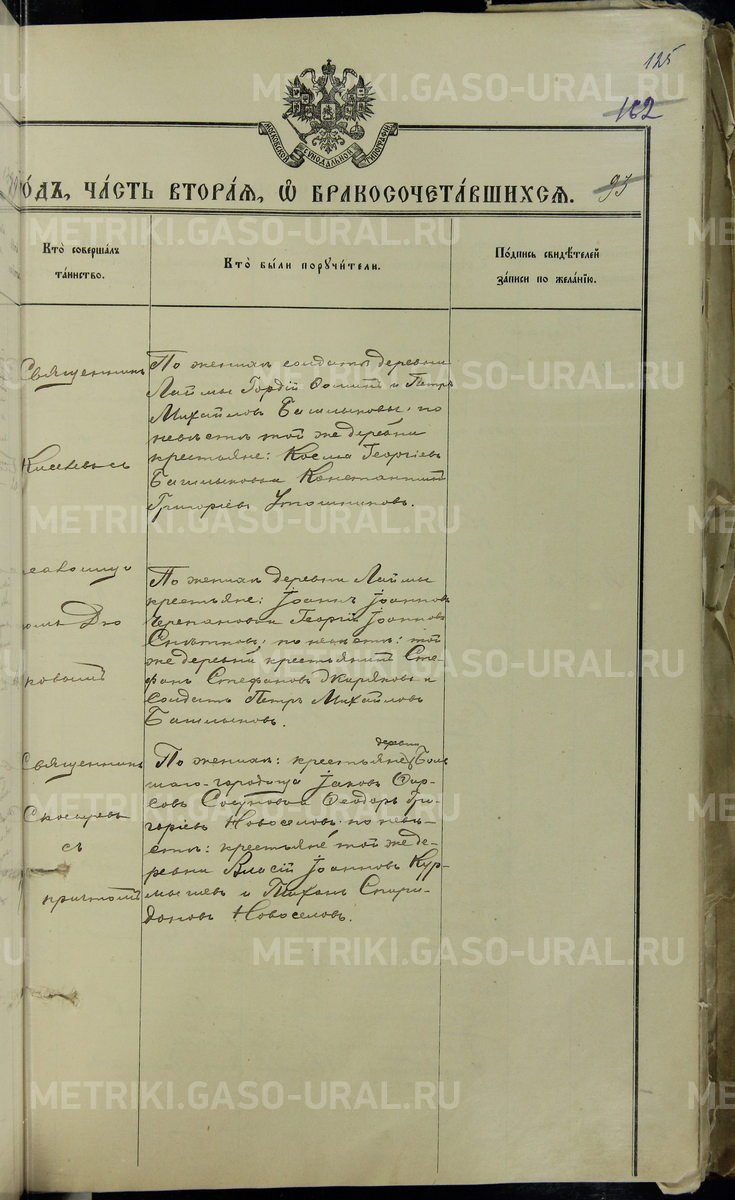 125
162
93
МОСКОВСКОЙ СѴНОДАЛЬНОЙ ТИПОГРАФІИ
ГОДЪ, ЧАСТЬ ВТОРАѦ, Ѽ БРАКОСОЧЕТАВШИХСѦ.
Кто̀ совершалъ
та́инство.
Кто̀ бы́ли порꙋчи́тели.
По́дпись свидѣ́телей
за́писи по жела́нїю.
Священникъ
По женихѣ солдаты деревни
Лаймы Гордій Ѳоминъ и Петръ
Михайловъ Башлыковы; по
невѣстѣ той же деревни
крестьяне: Косма Георгіевъ
Башлыковъ и Константинъ
Григоріевъ
съ
По женихѣ деревни Лаймы
крестьяне: Іоаннъ Іоанновъ
Черепановъ и Георгій Іоанновъ
по невѣстѣ: той
же деревни крестьянинъ Сте-
фанъ Стефановъ и
солдатъ Петръ Михайловъ
Башлыковъ.
Священникъ
съ
причтомъ
По женихѣ: крестьяне деревни Боль
шаго-городища Іаковъ Фир-
совъ и Ѳеодоръ Гри-
горіевъ Новоселовъ по невѣ-
стѣ: крестьяне той же де-
ревни Власій Іоанновъ Кур-
мычевъ и Тихонъ Спири-
доновъ Новоселовъ.
METRIKI.GASO-URAL.RU